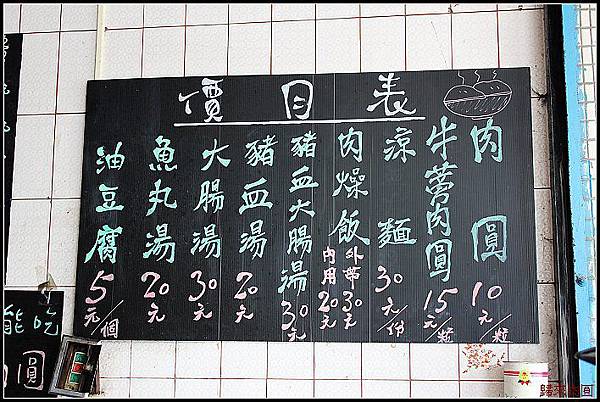 價目表
肉圓 10元/粒
牛蒡肉圓 15元/粒
涼麵 30元/份
肉燥飯 外帶30元 內用20元
豬血大腸湯 30元
豬血湯 20元
大腸湯 30元
魚丸湯 20元
油豆腐 5元/個
能吃
圓